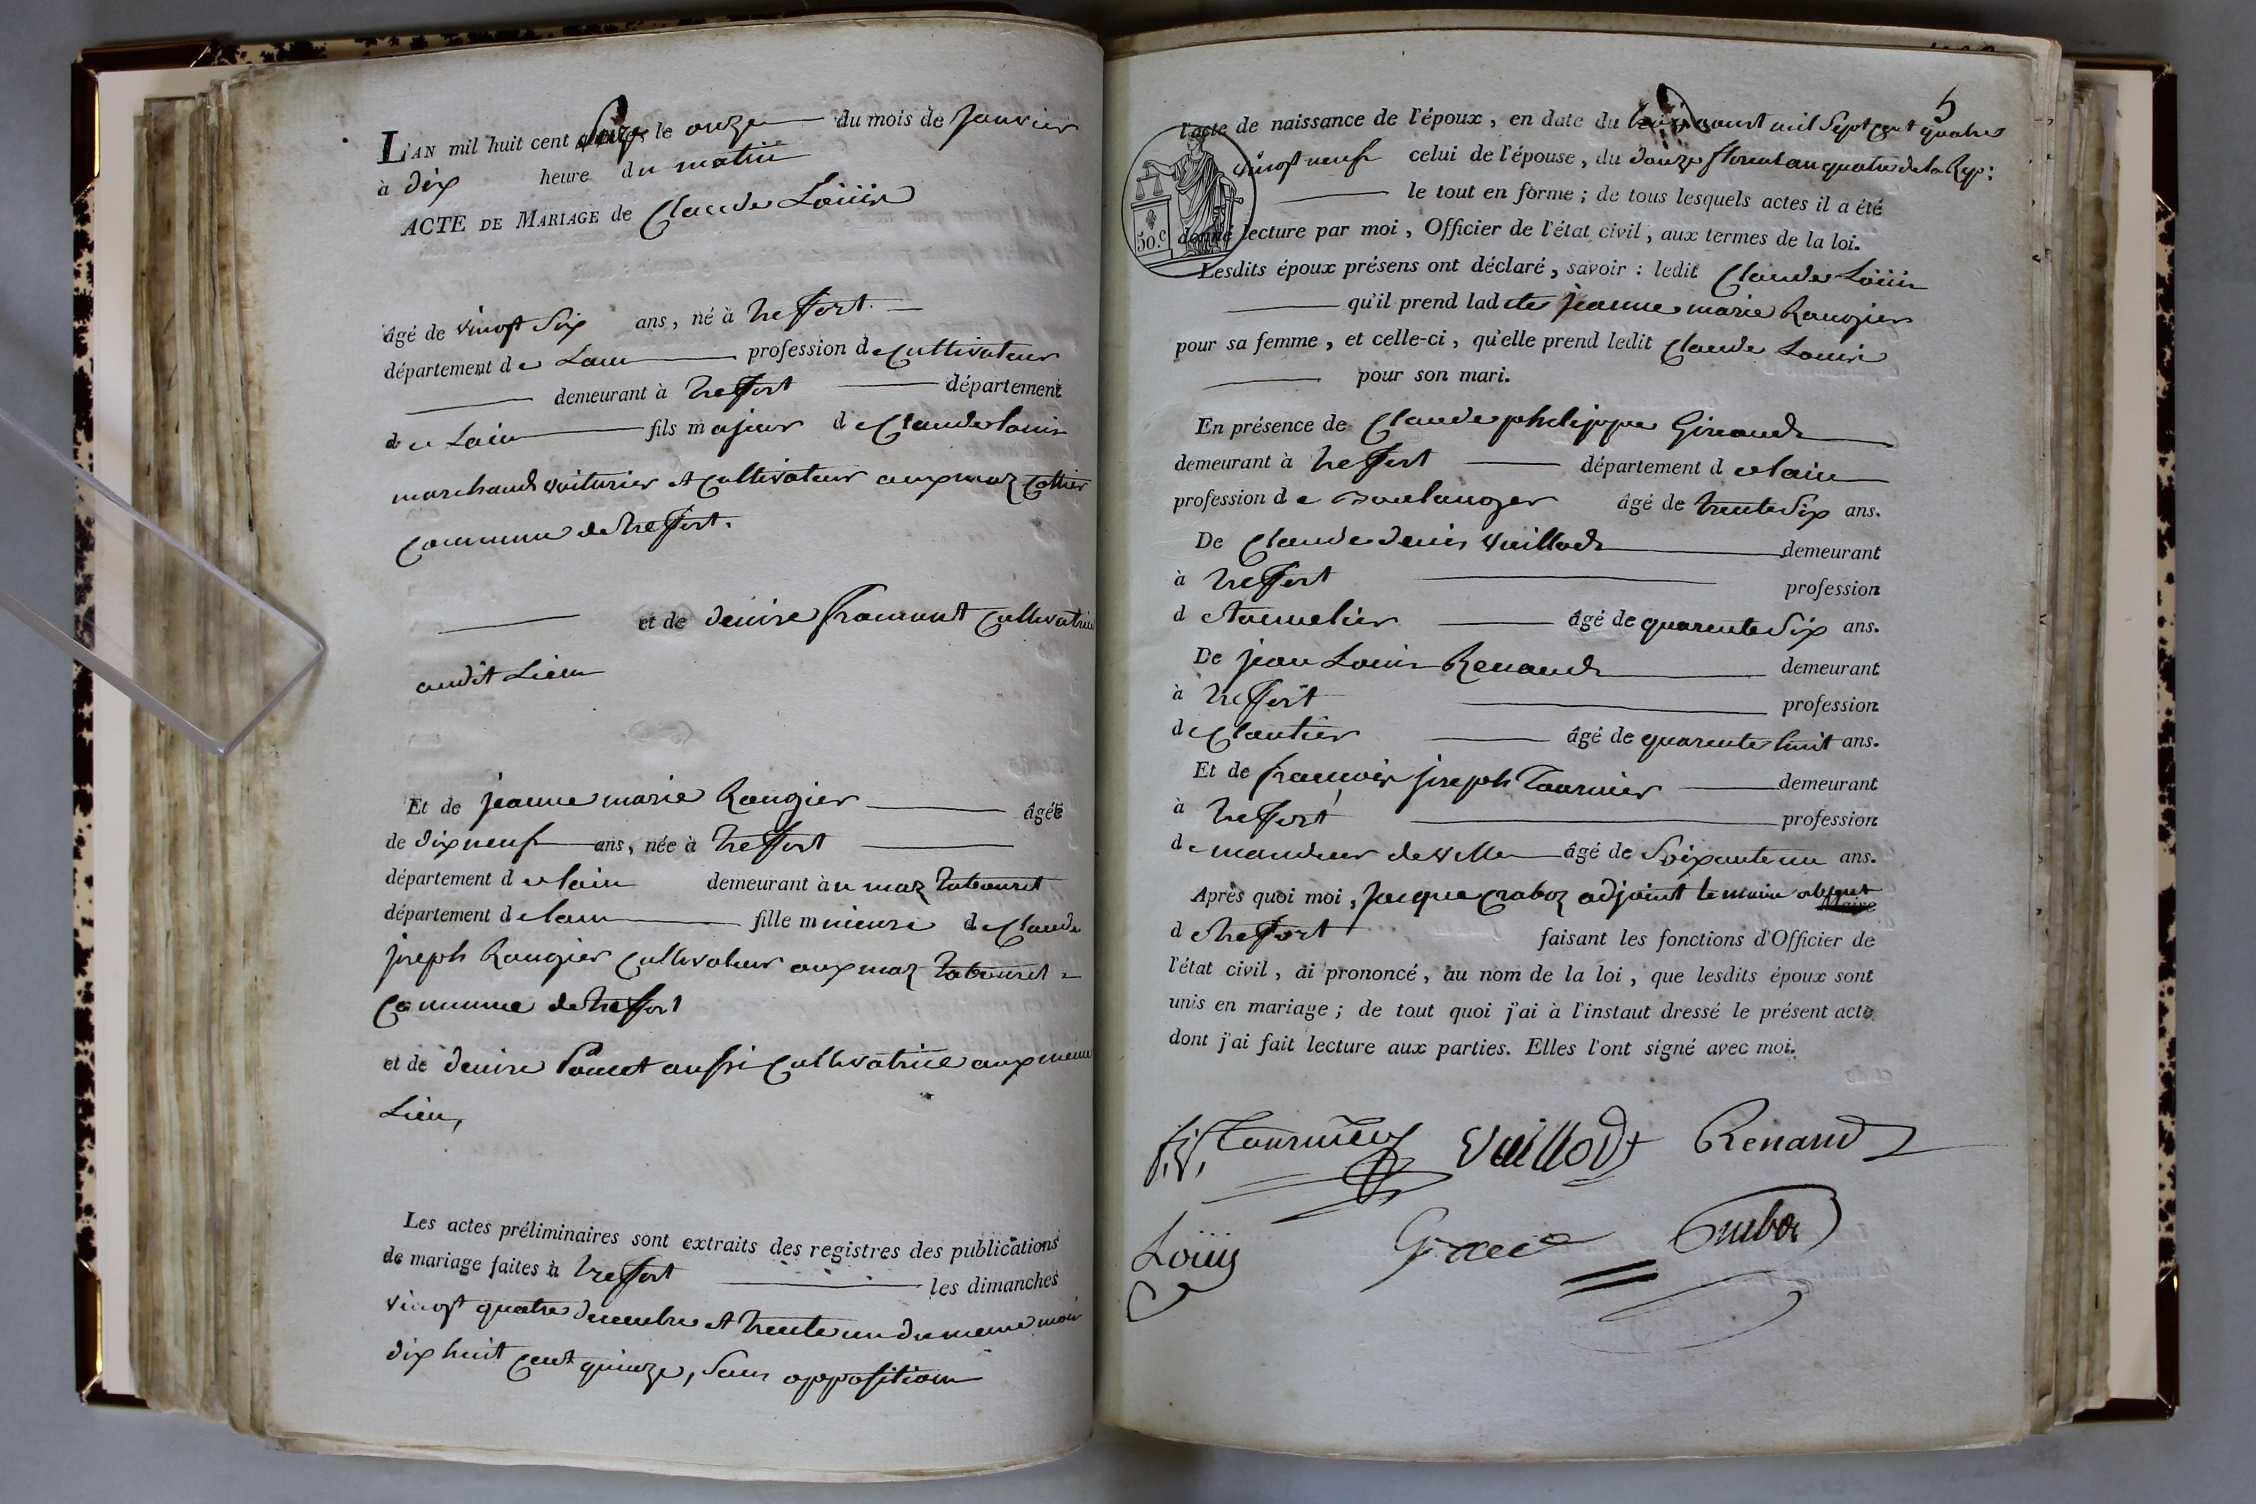 L'AN mil huit cent seize, le onze du mois de Janvier
à dix heure du matin
ACTE DE MARIAGE de Claude Loüis
âgé de vingt six ans, né à treffort.
département de Lain profession de cultivateur
demeurant à treffort département
de Lain fils majeur de Claude louis
marchand voiturier et cultivateur aux maz
commune de treffort.
et de denise framont cultivatrice
audit Lieu
Et de jeanne marie Rougier âgée
de dix neuf ans, née à treffort
département de lain demeurant au maz tabouret
département de lain fille mineure de Claude
joseph Rougier cultivateur aux maz tabouret
commune de treffort
et de denise Poncet aussi cultivatrice aux meme
Lieu,
Les actes préliminaires sont extraits des registres des publications
de mariage faites à treffort les dimanches
vingt quatre decembre et trente un du meme mois
dix huit cent quinze, sans opposition
5
l'acte de naissance de l'époux, en date du aout mil sept cent quatre
vingt neuf celui de l'épouse, du douze floreal an quatre de la Rep:
le tout en forme ; de tous lesquels actes il a été
50.c
donné lecture par moi, Officier de l'état civil, aux termes de la loi.
Lesdits époux présens ont déclaré, savoir : ledit Claude Loüis
qu'il prend ladite jeanne marie Rougier
pour sa femme, et celle-ci, qu'elle prend ledit Claude Louis
pour son mari.
En présence de Claude philippe Giraud
demeurant à treffort département de lain
profession de Boulanger âgé de trente six ans.
De Claude denis Vuillod demeurant
à treffort profession
de tournelier âgé de quarente six ans.
De jean Louis Renaud demeurant
à treffort profession
de cloutier âgé de quarente huit ans.
Et de francois joseph Tournier demeurant
à treffort profession
de mandeur de ville âgé de soixante un ans.
Après quoi moi, jacque adjoint le maire absent Maire
de treffort faisant les fonctions d'Officier de
l'état civil, ai prononcé, au nom de la loi, que lesdits époux sont
unis en mariage ; de tout quoi j'ai à l'instaut dressé le présent acte
dont j'ai fait lecture aux parties. Elles l'ont signé avec moi.
f.j. Tournier Vuillod Renaud
Loüis